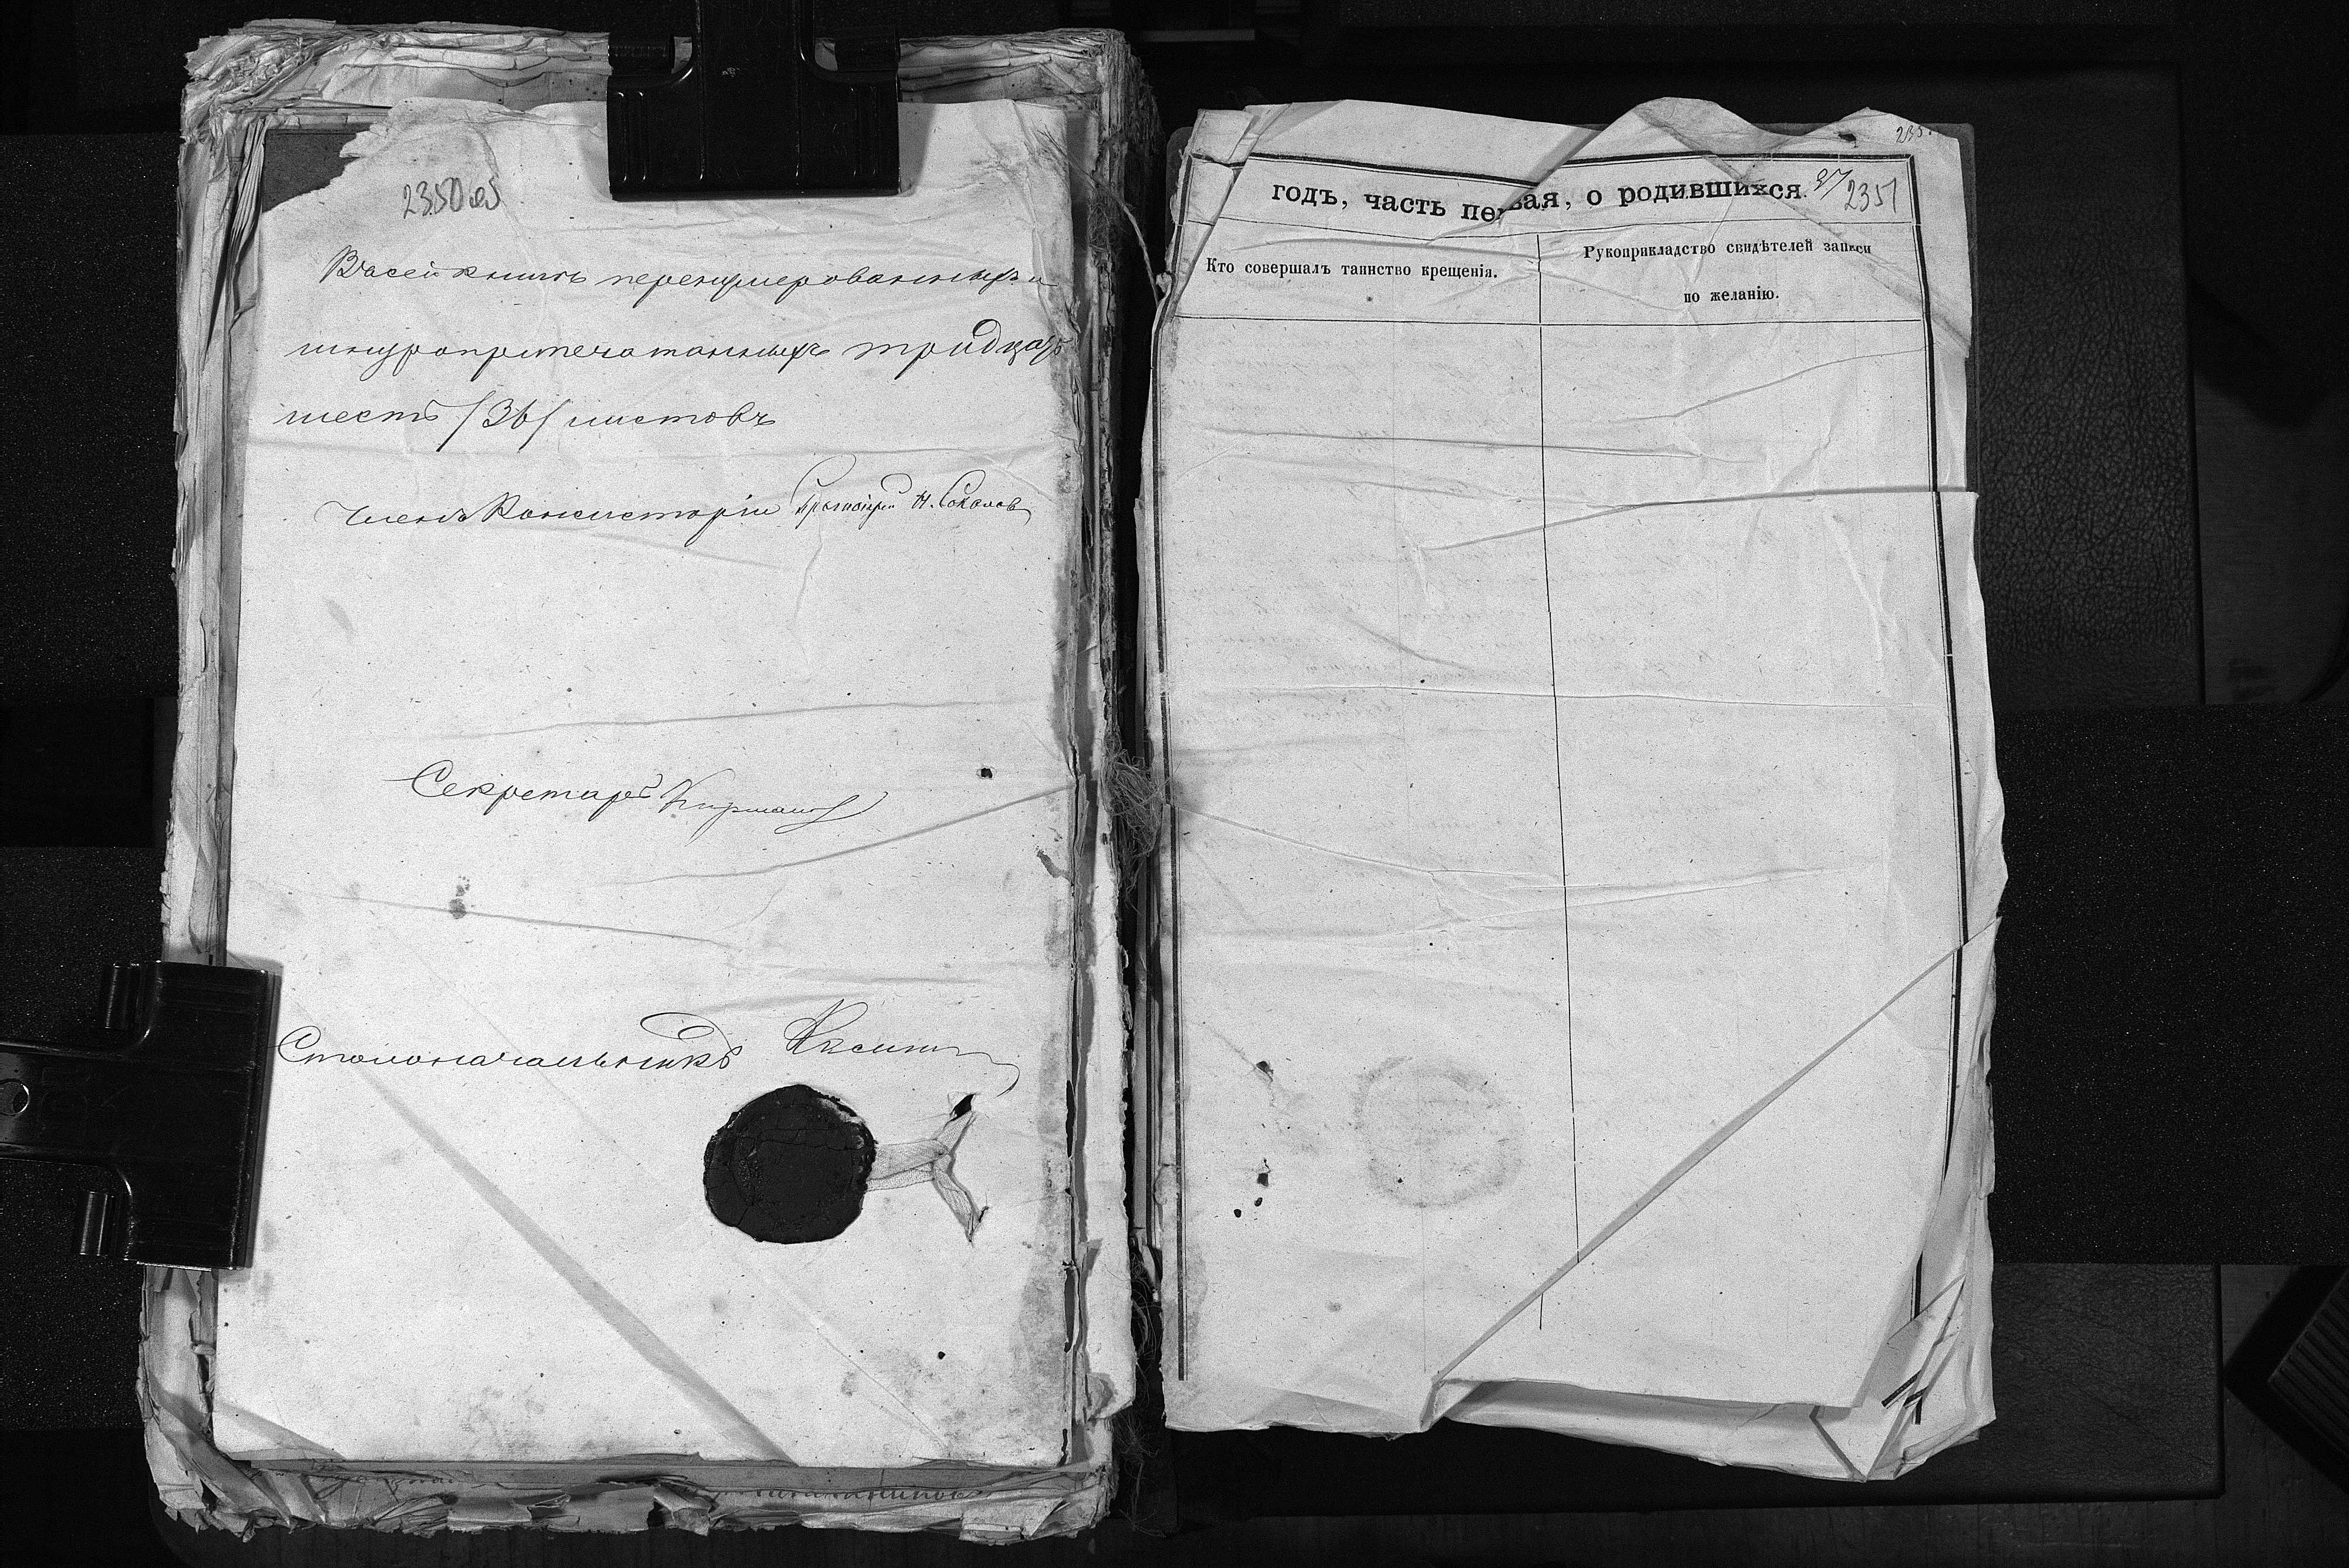 2350 об
В сей книге перенумерованныхъ и
шнуропрепечатанныхъ тридцать
шесть /36/ листовъ
Членъ Консисторіи Протоіерей Н. Соколовъ
Секретарь
Столоначальникъ
235
годъ, часть первая, о родившихся. 37 2351
Кто совершалъ таинство крещенія.
Рукоприкладство свидѣтелей записи
по желанію.